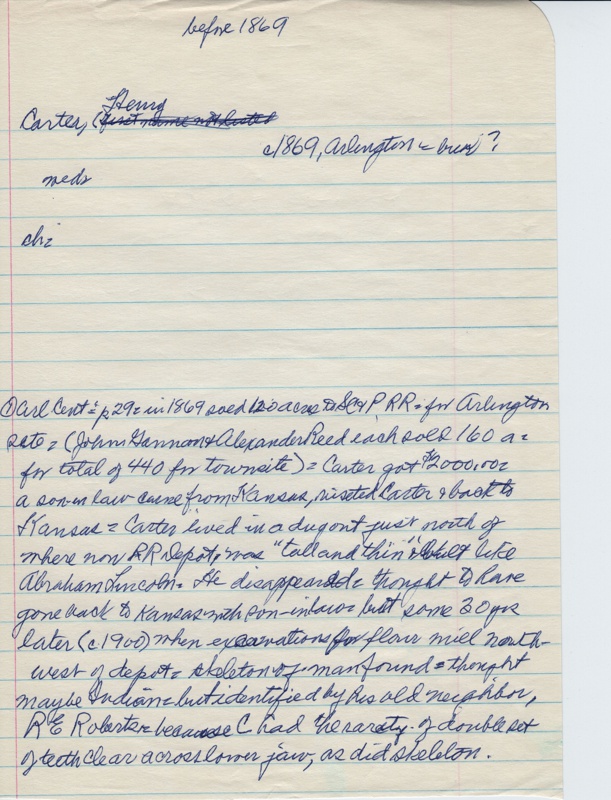 before 1869
Henry
Carter, (first name not listed
c1869, Arlington = bur ?
meds
ch:
① Arl Cent = p29 = in 1869 sold 120 acres to SC&P RR = for Arlington
site = (John Gannan & Alexander Reed each sold 160 a =
for total of 440 for townsite) = Carter got $2000.00 =
a son in law came from Kansas, visited Carter & back to
Kansas = Carter lived in a dugout just north of
where now RR Depot, was "tall and thin" & built like
Abraham Lincoln = He disappeared = thought to have
gone back to Kansas with son-in-law = but some 30 yrs
later (c1900) when excavations for flour mill north-
west of depot = skeleton of man found = thought
maybe Indian = but identified by his old neighbor,
R E Roberts = because C had the rarety of double set
of teeth clear across lower jaw, as did skeleton.